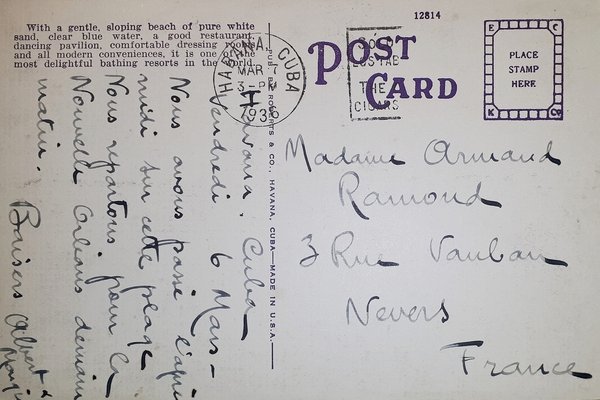 With a gentle, sloping beach of pure white
sand, clear blue water, a good restaurant,
dancing pavilion, comfortable dressing rooms
and all modern conveniences, it is one of the
most delightful bathing resorts in the world.
12814
POST
CARD
E C
K Co
PLACE
STAMP
HERE
HABANA, CUBA
MAR 7
3-PM
1936
THE
CIGARS
PUB. BY ROBERTS & CO., HAVANA, CUBA—MADE IN U.S.A.
Havana. Cuba
Vendredi 6 Mars-
Nous avons passé l'après
midi sur cette plage
Nous repartons pour la
Nouvelle Orleans demain
matin.
Baisers Albert &
Madame Armand
Ramond
3 Rue Vauban
Nevers
France